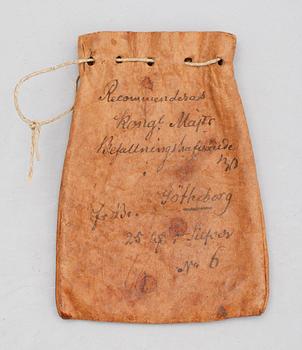 Recommenderas
Kongl Majts
Befallningshafvande
Götheborg
25
No 6